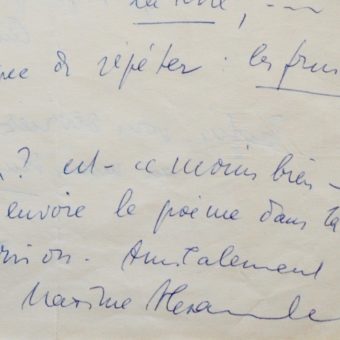 la terre, —
de répéter : les frui
? est-ce moins bien —
envoie le poème dans ta
Amicalement
Maxime Alexandre